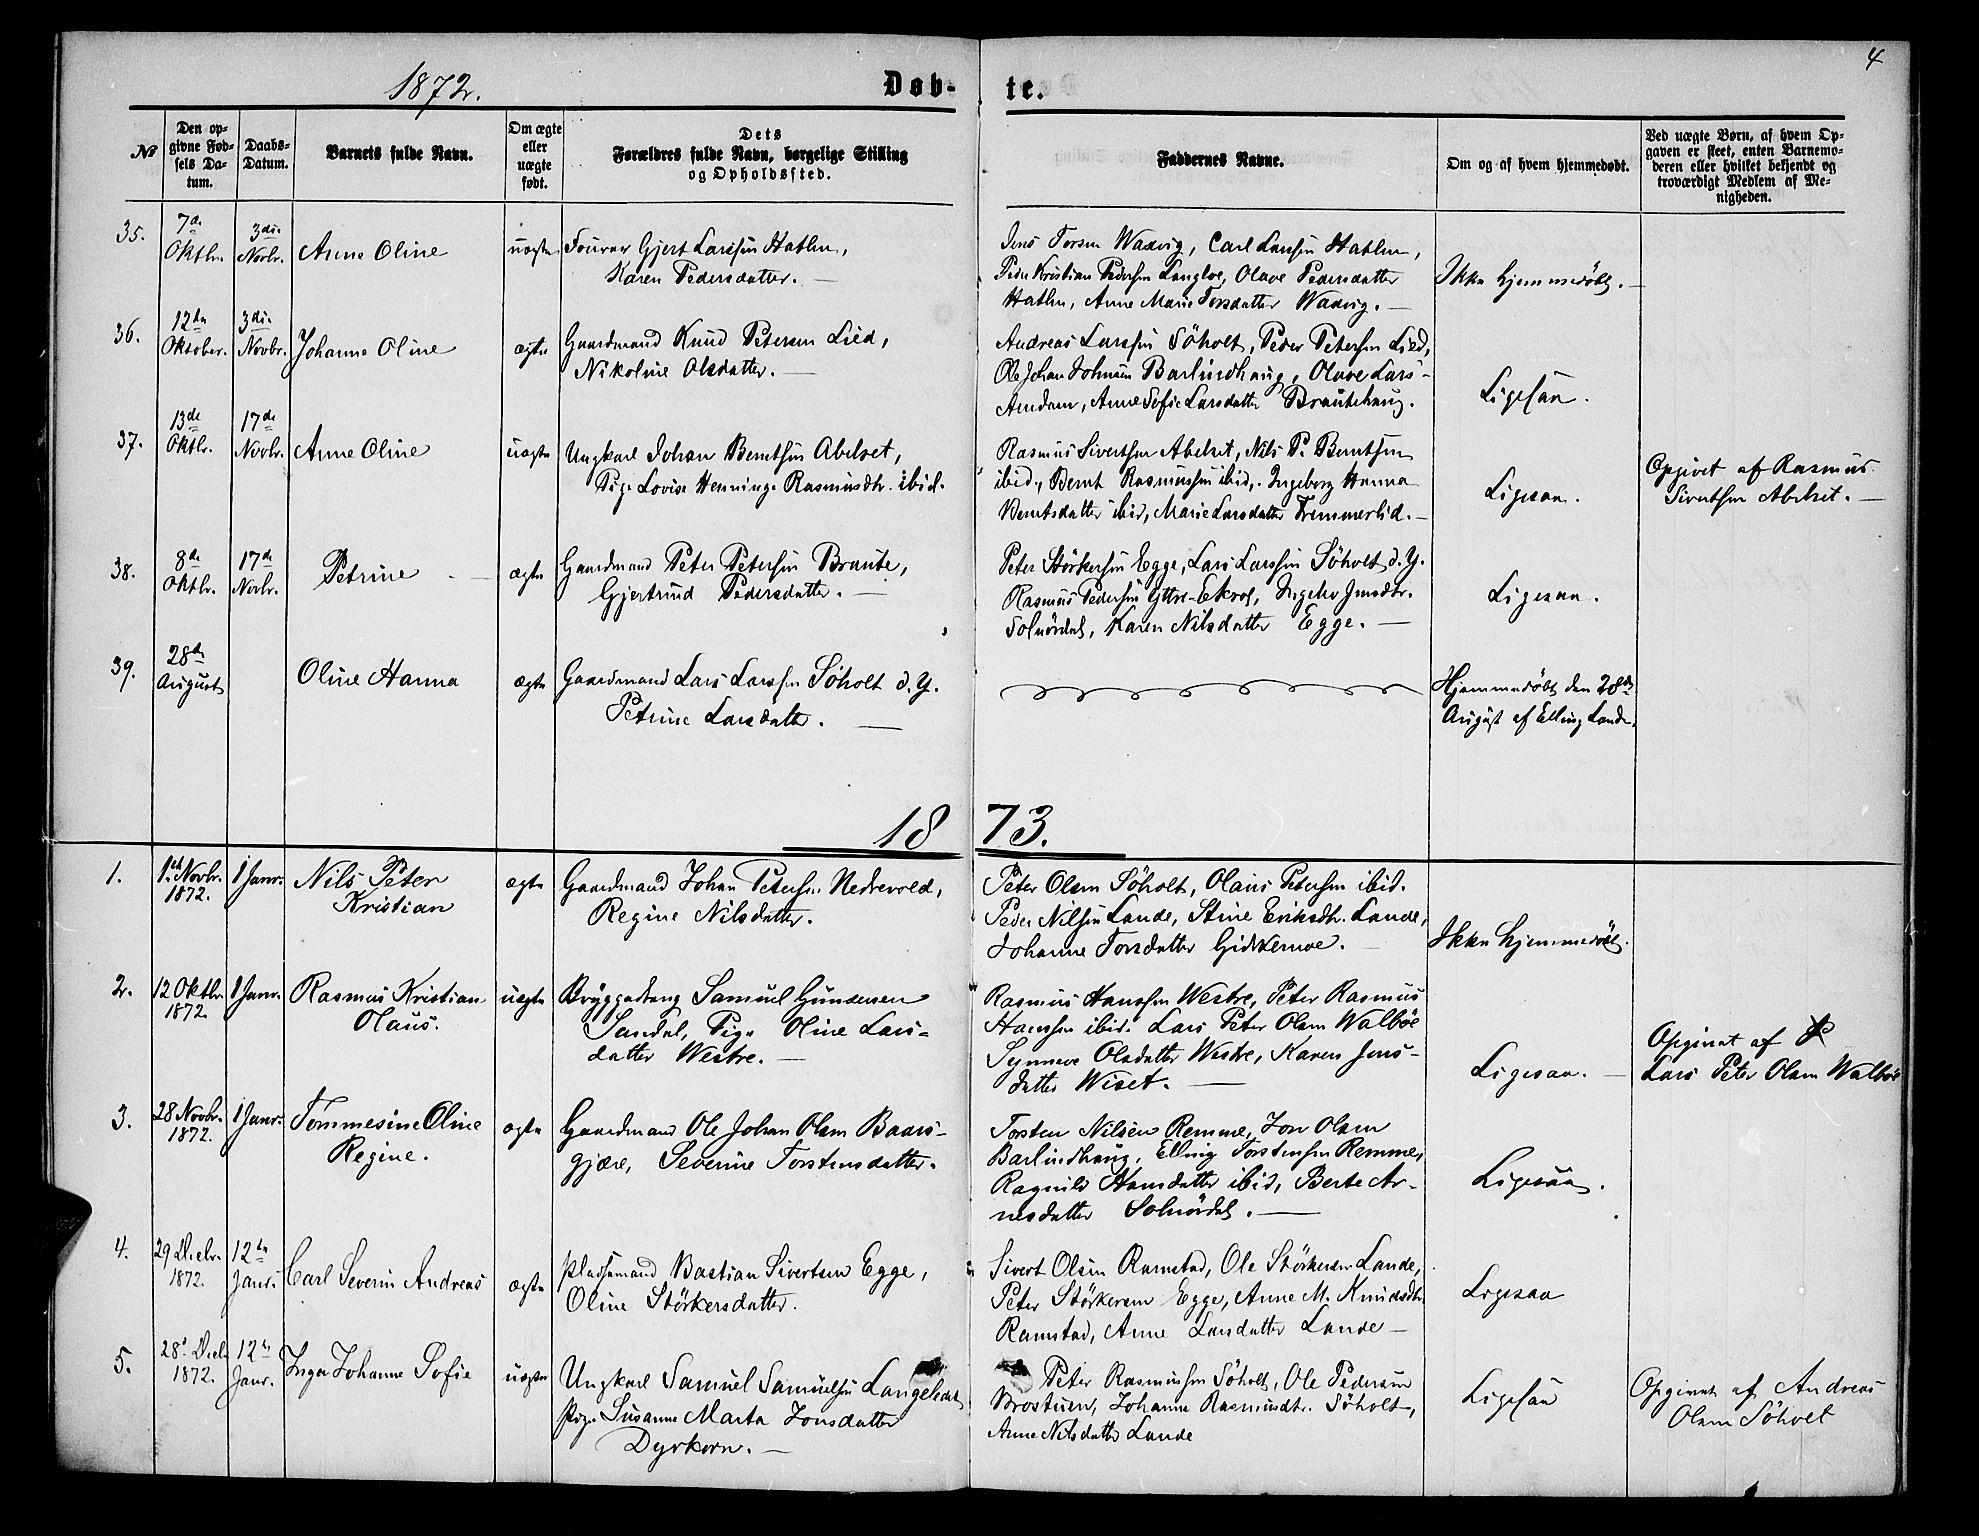 4
1872.
Døb-
te.
№
Den op-
givne Fød-
sels Da-
tum.
Daabs-
Datum.
Barnets fulde Navn.
Om ægte
eller
uægte
født.
Dets
Forældres fulde Navn, borgelige Stilling
og Opholdssted.
Faddernes Navne.
Om og af hvem hjemmedøbt.
Ved uægte Børn, af hvem Op-
gaven er skeet, enten Barnemo-
deren eller hvilket bekjendt og
troværdigt Medlem af Me-
nigheden.
35.
7de
Oktbr.
3die
Novbr.
Anne Oline
uægte
Gjert Larssen Hatlen,
Karen Pedersdatter. —
Jens Torsen Wadvig, Carl Larssen Hatlen,
Peder Kristian Pedersen Langloe, Olave Pedersdatter
Hatlen, Anne Marie Torsdatter Wadvig. —
Ikke hjemmedöbt. —
36.
12te
Oktober.
3die
Novbr.
Johanne Oline
ægte
Gaardmand Knud Petersen Lied,
Nikoline Olsdatter. —
Andreas Larssen Söholt, Peder Petersen Lied,
Ole Johan Johnsen Barlindhaug, Olave Lars-
Amdam, Anne Sofie Larsdatter Brautehaug.
Ligesaa.
37.
13de
Oktbr.
17de
Novbr.
Anne Oline
uægte
Ungkarl Johan Berntsen Abelset,
Pige Lovise Henninge Rasmusdtr. ibid.
Rasmus Sivertsen Abelset, Nils P. Berntsen
ibid., Bernt Rasmussen ibid., Ingeborg Hanna
Berntsdatter ibid, Marie Larsdatter Fremmerlid. —
Ligesaa.
Opgivet af Rasmus
Sivertsen Abelset. —
38.
8de
Oktbr.
17de
Novbr.
Petrine —
ægte
Gaardmand Peter Petersen Braute,
Gjertrud Pedersdatter. —
Peter Störkersen Egge, Lars Larssen Söholt d. Y.
Rasmus Pedersen Yttre-Ekrol, Jensdtr.
Solnördal, Karen Nilsdatter Egge. —
Ligesaa.
39.
28de
August
Oline Hanna
ægte
Gaardmand Lars Larssen Söholt d. Y.
Petrine Larsdatter. —
Hjemmedöbt den 28de
August af Elling Lande.
1873.
1.
1ste Novbr.
1872.
1 Janr.
Nils Peter
Kristian
ægte
Gaardmand Johan Petersen Nedrevold,
Regine Nilsdatter.
Peter Olsen Söholt, Olaus Petersen ibid.
Peder Nilsen Lande, Stine Eriksdtr. Lande,
Johanne Torsdatter Gidskemoe. —
Ikke hjemmedöbt.
2.
12 Oktbr.
1872.
1 Janr.
Rasmus Kristian
Olaus.
uægte
Samuel Gundersen
Sandal, Pige Oline Lars-
datter Westre. —
Rasmus Hanssen Westre, Peter Rasmus
Hanssen ibid. Lars Peter Olsen Walböe
Synneve Olsdatter Westre, Karen Jens-
datter Wiset. —
Ligesaa. —
Opgivet af
Lars Peter Olsen Walböe
3.
28 Novbr.
1872.
1 Janr.
Tommesine Oline
Regine.
ægte
Gaardmand Ole Johan Olsen Baars-
gjære, Severine Torstensdatter.
Torsten Nilsen Remme, Jon Olsen
Barlindhaug, Elling Torstensen Remme,
Ragnild Hansdatter ibid, Berte Ar-
nesdatter Solnördal. —
Ligesaa.
4.
29 Decbr.
1872.
12te
Janr.
Carl Severin Andreas
ægte
Pladsmand Bastian Sivertsen Egge,
Oline Störkersdatter.
Sivert Olsen Ramstad, Ole Störkersen Lande,
Peter Störkersen Egge, Anne M. Knudsdtr.
Ramstad, Anne Larsdatter Lande —
Ligesaa
5.
28' Decb.
1872.
12te
Janr.
Inger Johanne Sofie
uægte
Ungkarl Samuel Samuelsen Langeland
Pige Susanne Marta Jonsdatter
Dyrkorn. —
Peter Rasmussen Söholt, Ole Pedersen
Brostuen, Johanne Rasmusdtr. Söholt,
Anne Nilsdatter Lande
Ligesaa
Opgivet af Andreas
Olsen Söholt